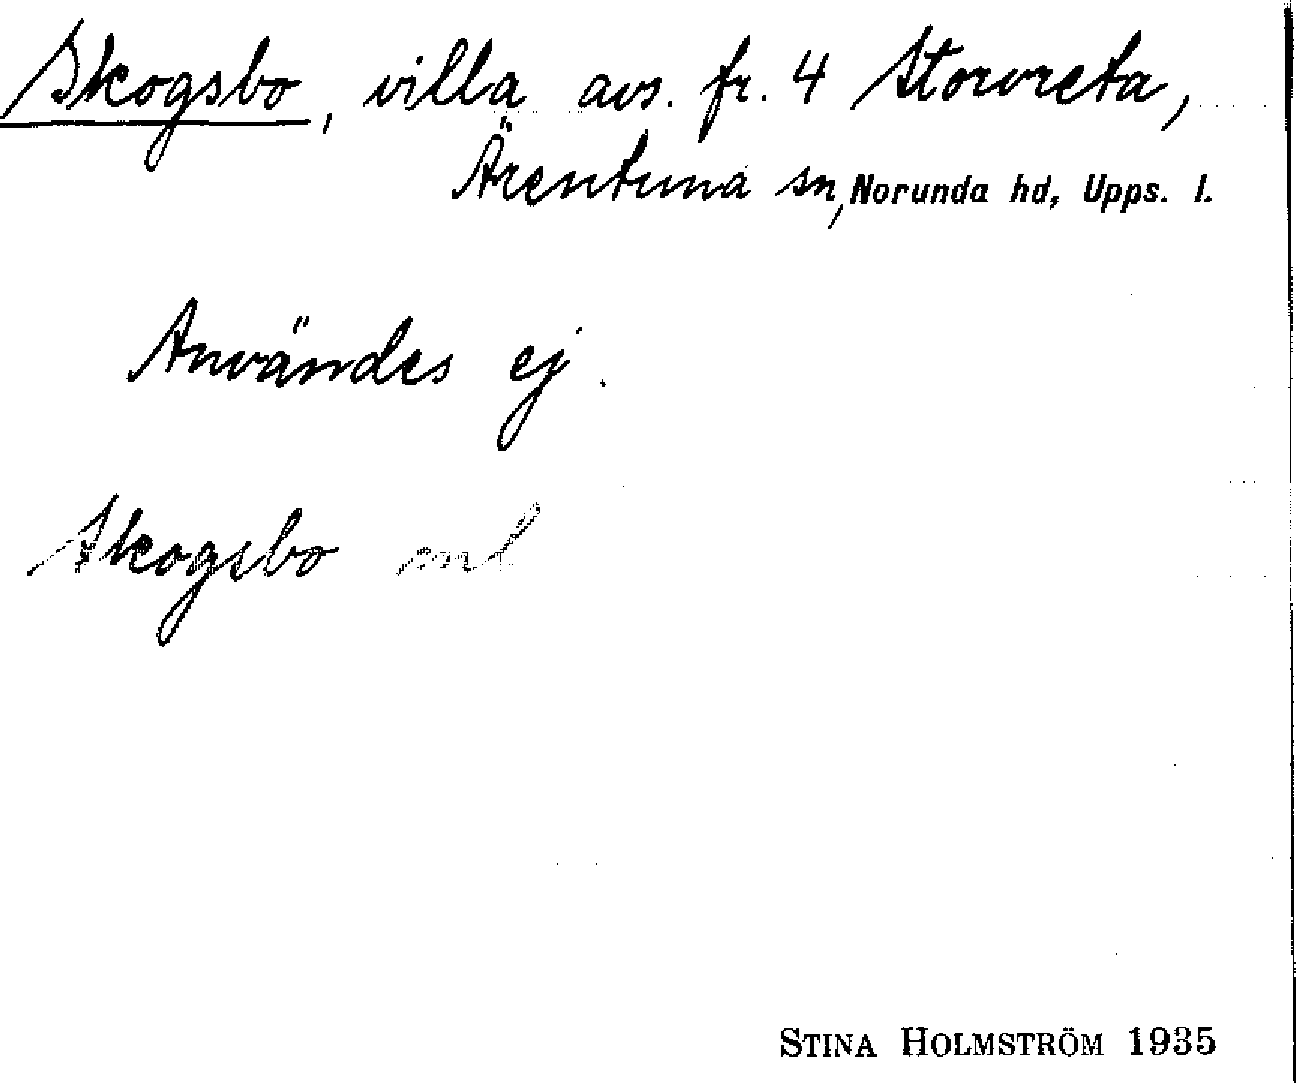 Skogsbo, villa avs. fr. 4 Storvreta,
Ärentuna sn, Norunda hd, Upps. l.
Användes ej.
Skogsbo
STINA HOLMSTRÖM 1935